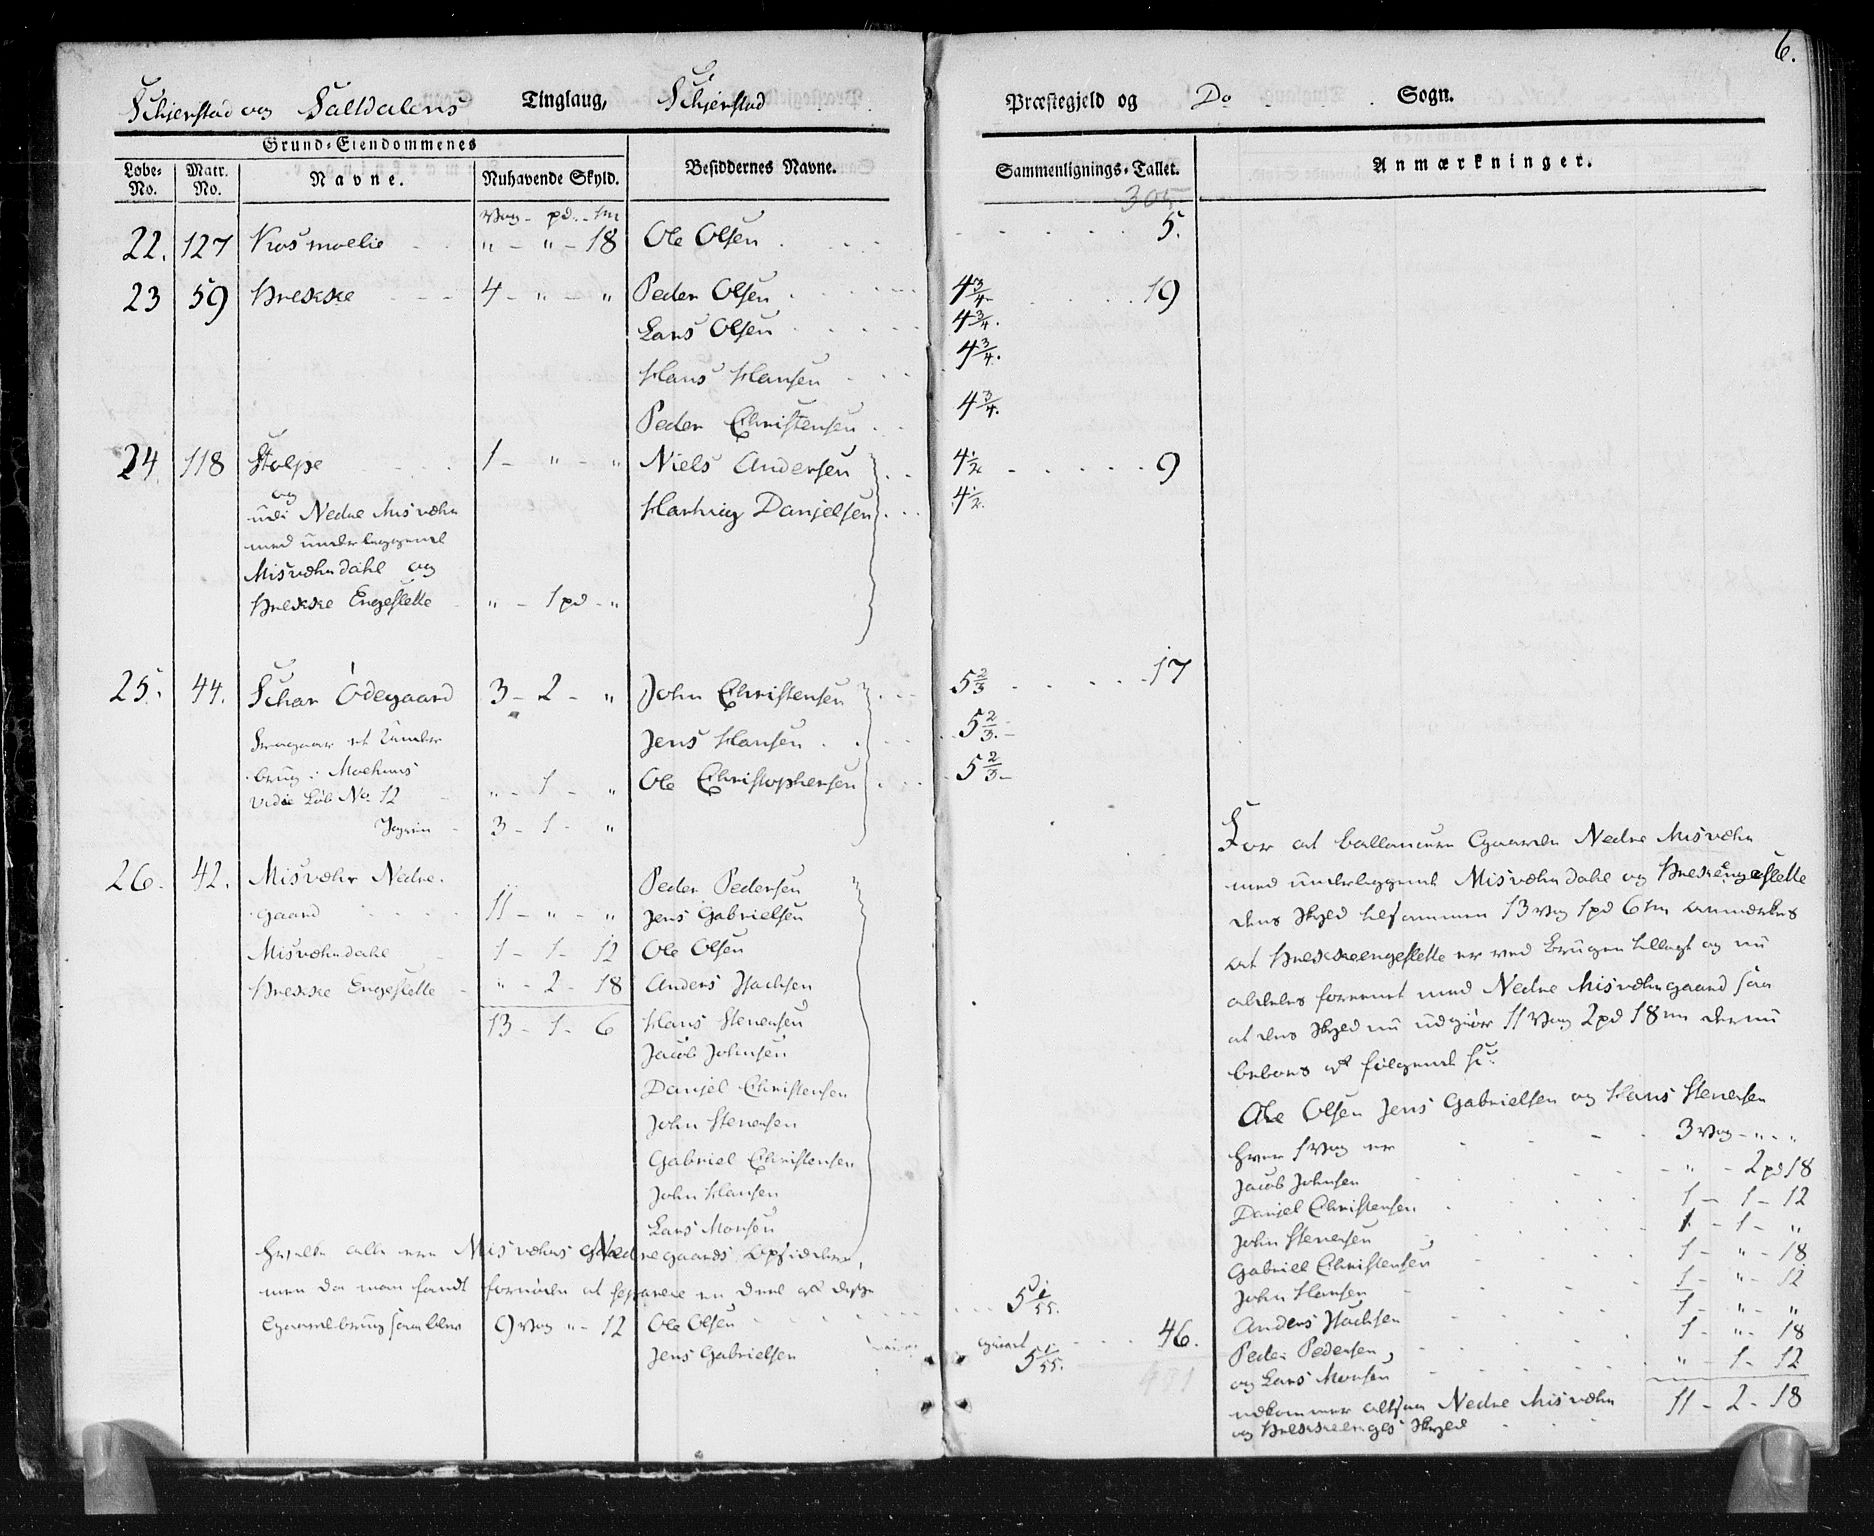 6.
Schjerstad og Saltdalens Tinglaug, Schjerstad Præstegjeld og Do Sogn.
Grund-Eiendommenes
Løbe-No. Matr. No. Navne. Nuhavende Skyld. Besiddernes Navne. Sammenlignings-Tallet. Anmærkninger.
Vog - pd - m 305
22. 127 Kosmoelie " - " - 18 Ole Olsen 5.
23 59 Hrekke 4 - " - " Peder Olsen 4 3/4 19
Lars Olsen 4 3/4.
Hans Hansen 4 3/4.
Peder Christensen 4 3/4.
24. 118 Stolpe 1 - " - " Niels Andersen 4 1/2 9
og
udi Nedre Misvæhr Hartvig Danjelsen 4 1/2.
med underliggende
Misvæhrdahl og
Hrekke Engeslette " - 1 pd - "
25. 44. Schar Ödegaard 3 - 2 - " John Christensen 5 2/3 17
Fragaar et Under Jens Hansen 5 2/3.
brug: Moehuus
vide Løb No 12 " - 1 - " Ole Christophersen 5 2/3
Igjen 3 - 1 - "
26. 42. Misvæhr Nedre Peder Pedersen
gaard 11 - " - " Jens Gabrielsen
Misvæhrdahl 1 - 1 - 12 Ole Olsen
Hrekke Engeslette " - 2 - 18 Anders Isachsen
13 - 1 - 6 Hans Stenersen
Jacob Johnsen
Danjel Christensen
John Stenersen
Gabriel Christensen
John Hansen
Lars Monsen
alle ere Misvæhrs Nedregaards Opsiddere,
men da man fandt fornøden at separere en Deel af disse
Gaardebrug saa blev 9 Vog " - 12 Ole Olsen 5 1/55.
Jens Gabrielsen 5 1/55. 46.
For at ballancere Gaarden Nedre Misvæhr
med underliggende Misvæhrdahl og Hrekkeengeslette
dens Skyld tilsammen 13 Vog 1 pd 6 m anmerkes
at Hrekkeengeslette er ved Brugen tillagt og nu
aldeles forenet med Nedre Misvæhrgaard saa
at dens Skyld nu udgiør 11 Vog 2 pd 18 m der nu
beboes af følgende
Ole Olsen Jens Gabrielsen og Hans Stenersen
hver 1 Vog er 3 Vog - " - "
Jacob Johnsen " - 2 pd 18
Danjel Christensen 1 - 1 - 12
John Stenersen 1 - 1 - "
Gabriel Christensen 1 - " - 18
John Hansen 1 - " - 12
Anders Isachsen 1 - " - "
Peder Pedersen, 1 - " - 18
og Lars Monsen " - 1 - 12
udkommer altsaa Nedre Misvæhr 11 - 2 - 18
og Hrekkeenges Skyld